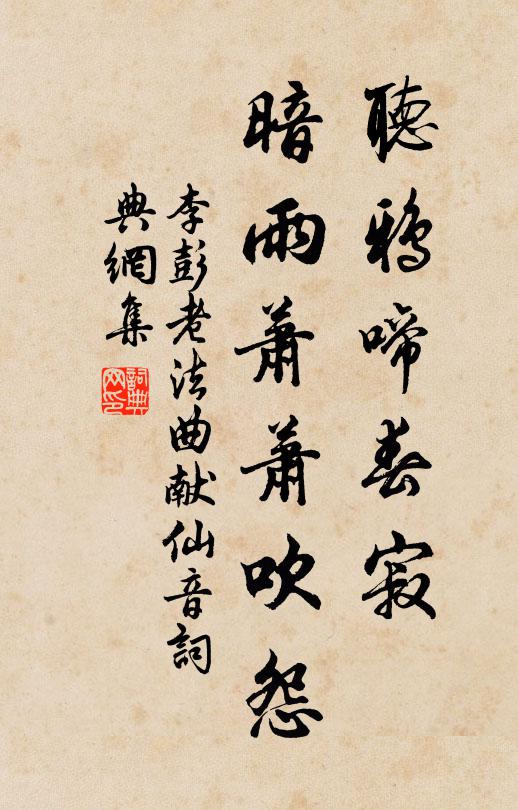 聽鴉啼春寂
暗雨蕭蕭吹怨
李彭老法曲献仙音詞
典網集
詞典
网印